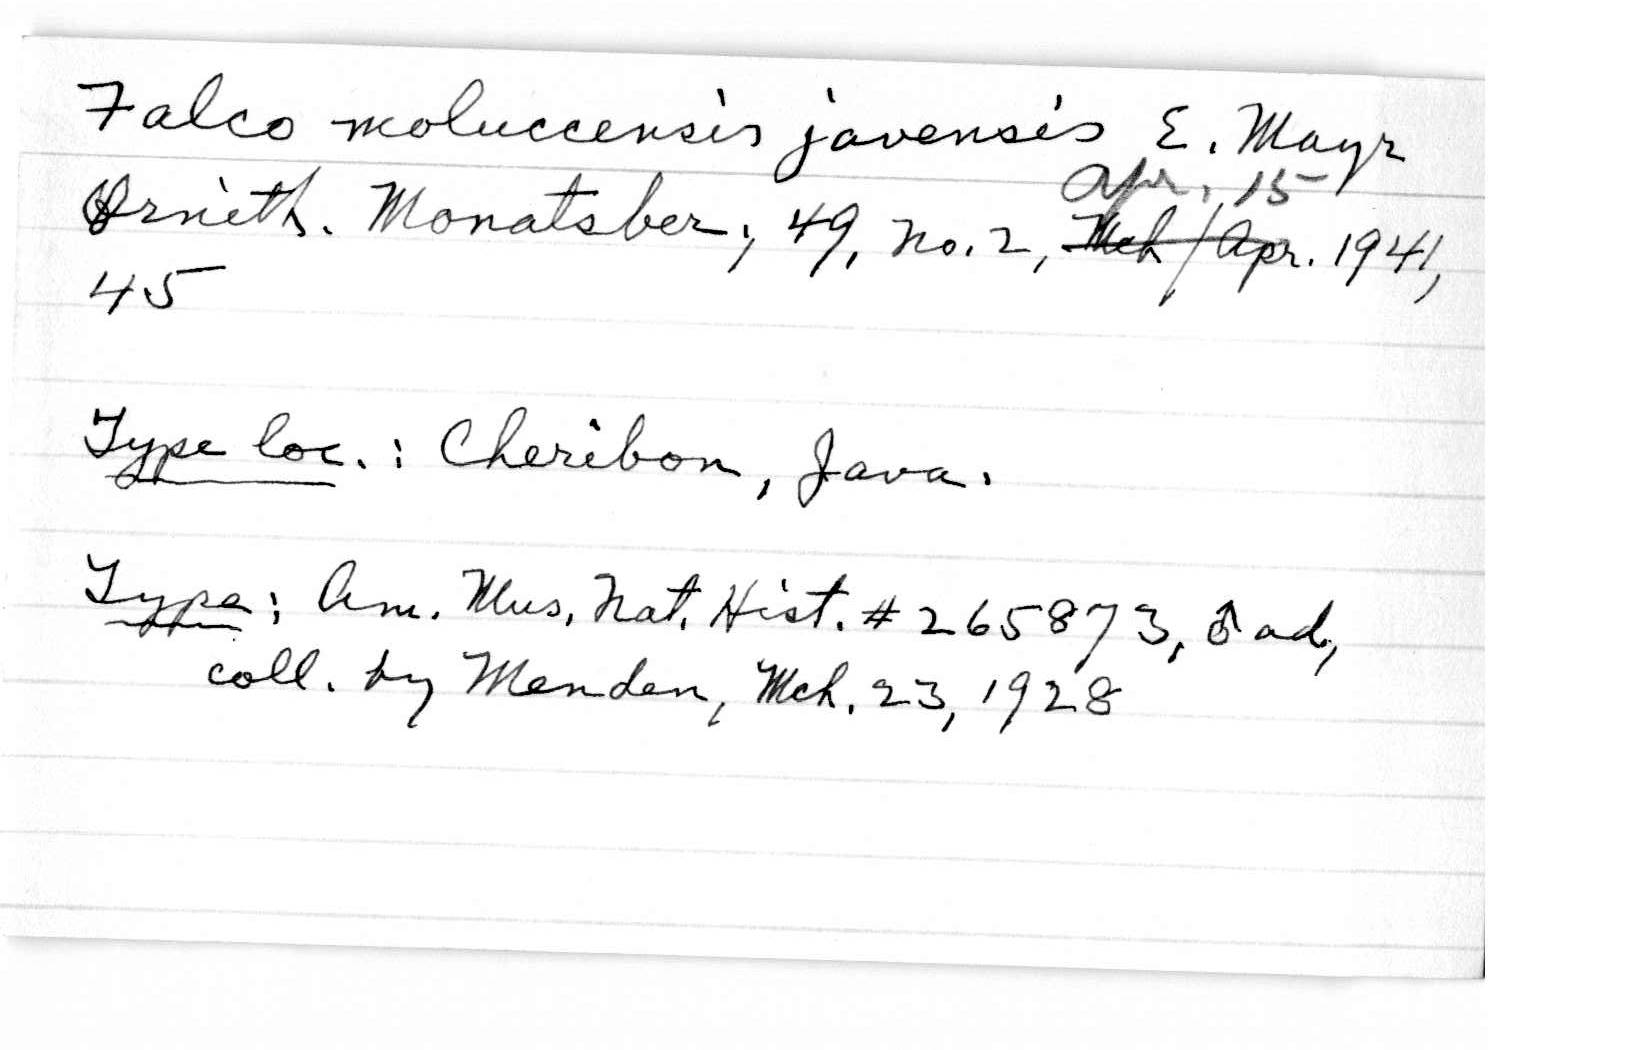 Falco moluccensis javensis E. Mayr
Apr. 15
Ornith. Monatsber., 49, no. 2, Mch/Apr. 1941,
45
Type loc.: Cheribon, Java.
Type: Am. Mus. Nat. Hist. # 265873, ♂ ad,
coll. by Menden, Mch. 23, 1928